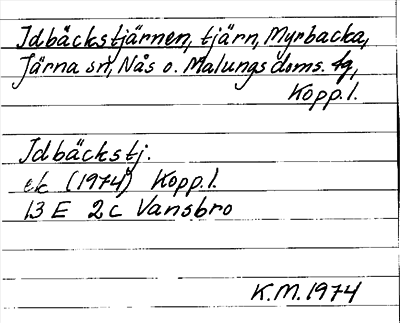 Idbäckstjärnen, tjärn, Myrbacka,
Järna sn, Nås o. Malungs doms. tg,
Kopp.l.
Idbäckstj.
ek (1974) Kopp.l.
13 E 2c Vansbro
K.M. 1974